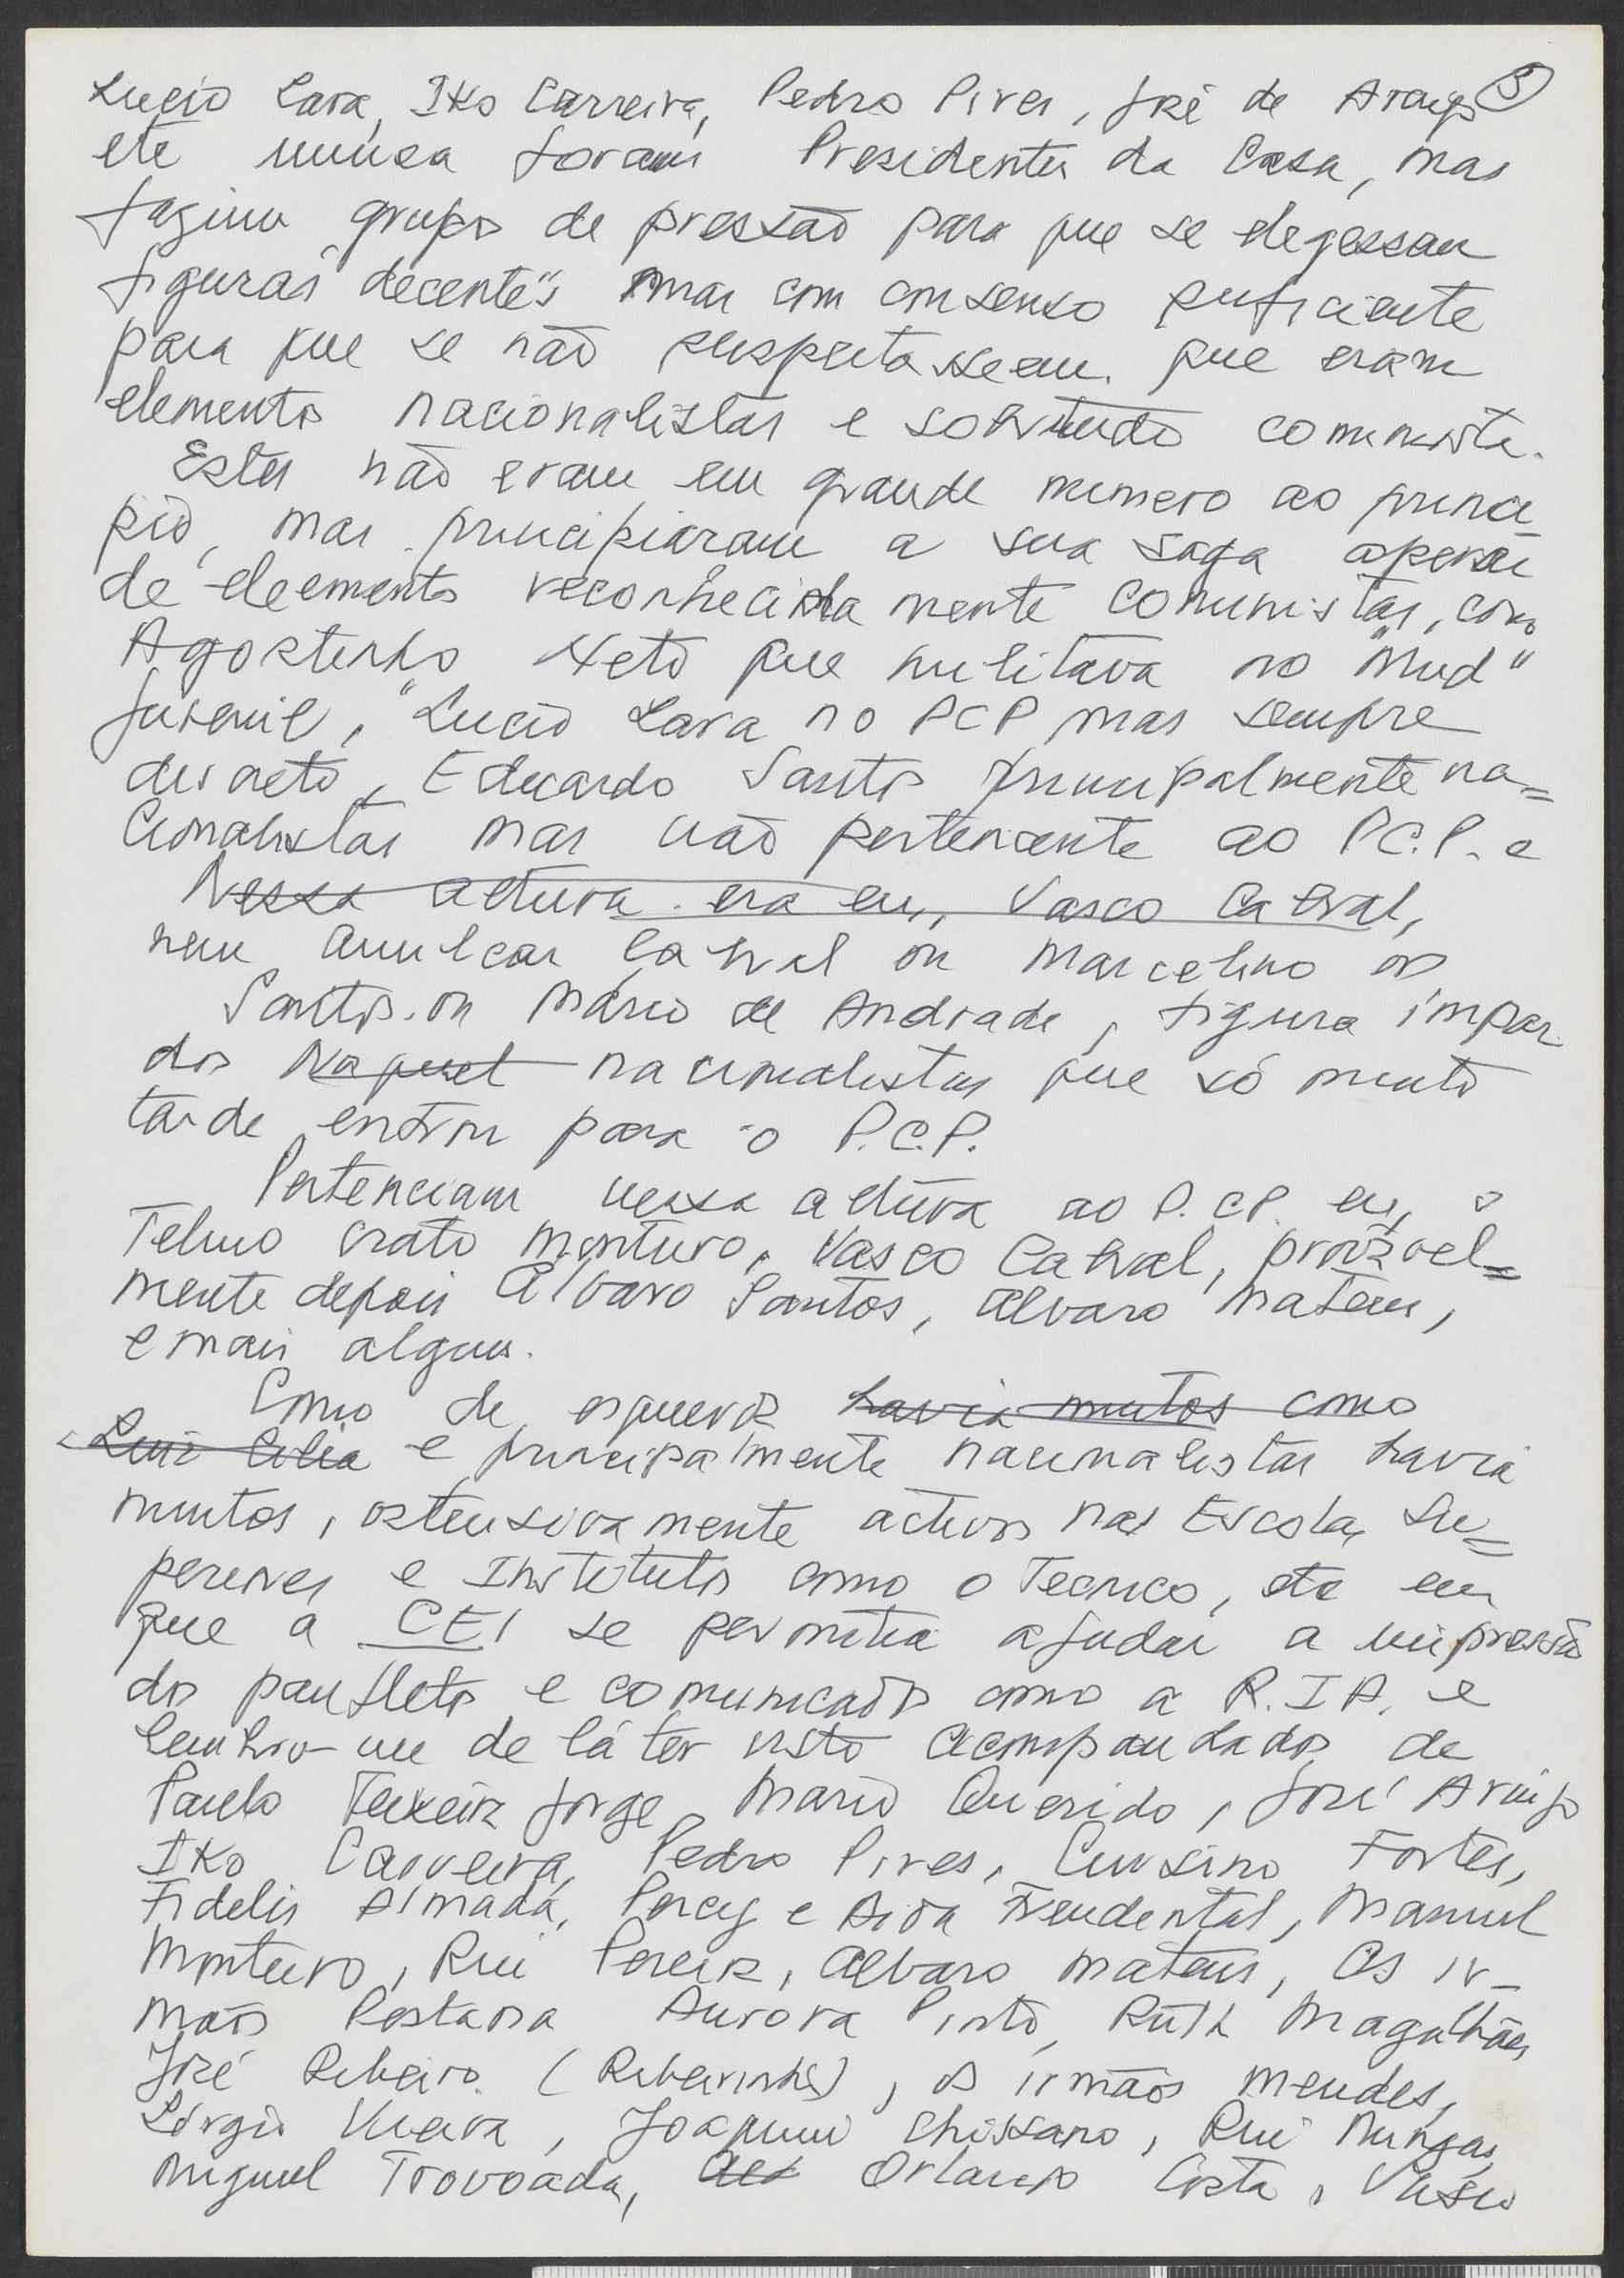 Lucio Lara, Iko Carreira, Pedro Pires, José de Araujo 5
etc nunca foram Presidentes da Casa, mas
faziam grupo de pressão para que se elegessem
figuras "decentes" mas com consenso suficiente
para que se não suspeitassem que eram
elementos nacionalistas e sobretudo comunista.
Estes não eram em grande numero ao princi
pio, mas principiaram a sua saga apenas
de elementos reconhecidamente comunistas, como
Agostinho Neto que militava no "Mud"
Juvenil, "Lucio Lara no PCP mas sempre
discreto, Eduardo Santos principalmente na=
cionalistas mas não pertencente ao P.C.P. e
Nessa altura era eu, Vasco Cabral,
nem Amilcar Cabral ou Marcelino os
Santos. ou Mário de Andrade, figura impar
dos Naquel nacionalistas que só muito
tarde entrou para o P.C.P.
Pertenciam nessa altura ao P.C.P. eu, o
Telmo Crato Monteiro, Vasco Cabral, provavel=
mente depois Alvaro Santos, Alvaro Mateus,
e mais alguns.
Como de esquerda havia muitos como
Luiz Cilia e principalmente nacionalistas havia
muitos, ostensivamente activos nas Escolas Su=
periores e Institutos como o Tecnico, etc em
que a CEI se permitia ajudar a impressão
dos panfletos e comunicados como a R.I.A. e
lembro-me de lá ter visto acompanhados de
Paulo Teixeira Jorge, Mario Querido, José Araujo
Iko Carreira, Pedro Pires, Corsino Fortes,
Fidelis Almada, Percy e Aida Freudental, Manuel
Monteiro, Rui Pereira, Alvaro Mateus, Os ir-
mãos Pestana Aurora Pinto, Ruth Magalhães
José Ribeiro (Ribeirinho), os irmãos Mendes,
Sérgio Vieira, Joaquim Chissano, Rui Mingas
Miguel Trovoada, Orlando Costa, Vasco